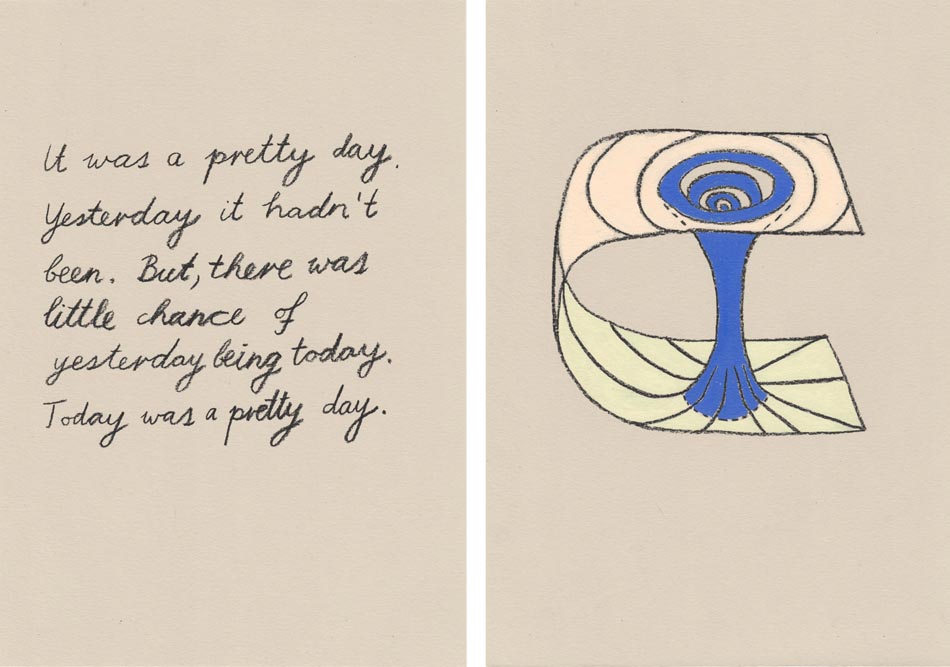 It was a pretty day.
Yesterday it hadn't
been. But, there was
little chance of
yesterday being today.
Today was a pretty day.